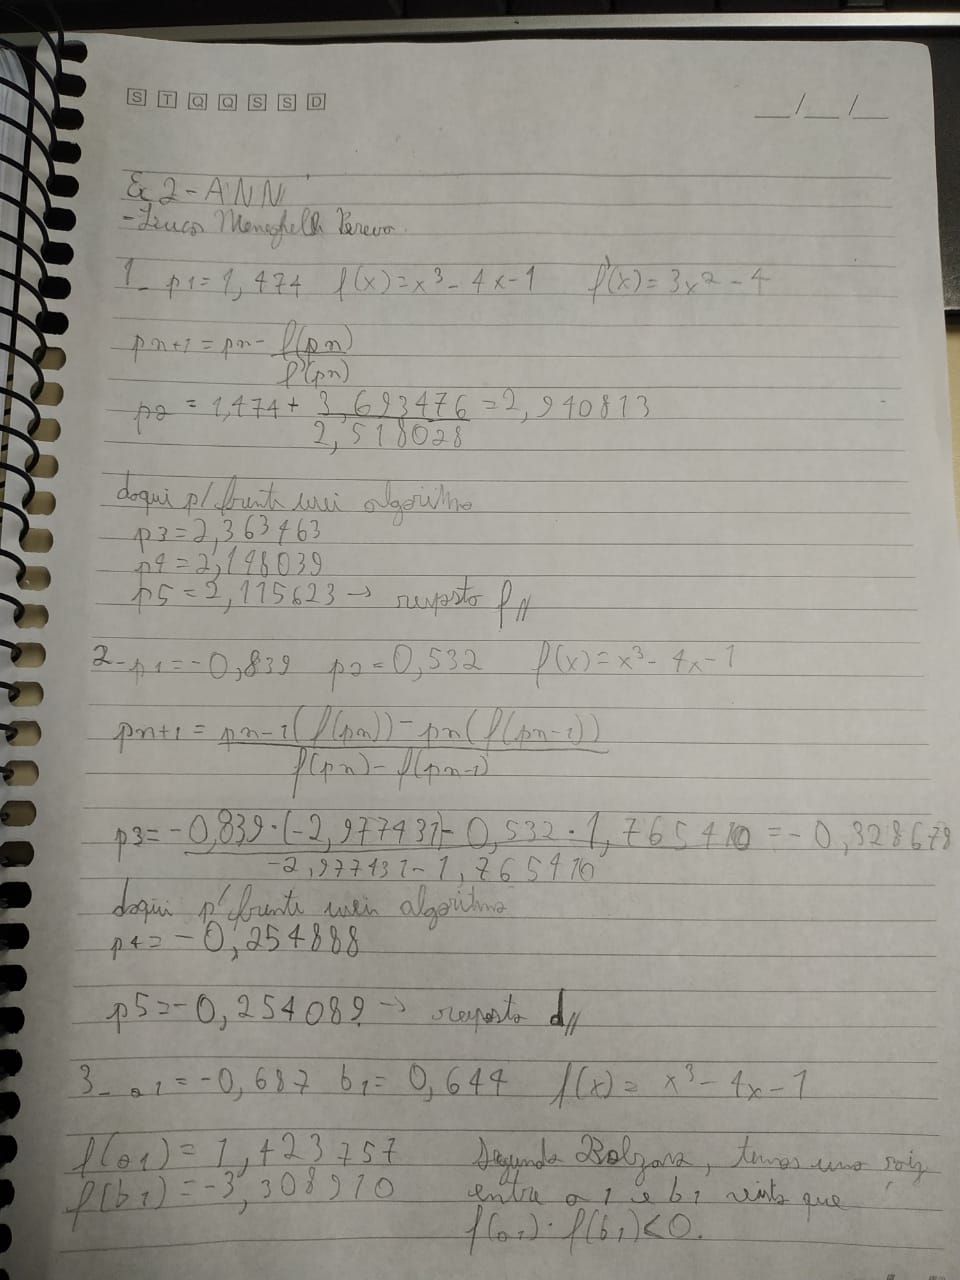 S T Q Q S S D
__/__/__
Ex 2 - ANN
1- p1 = 1,474 f(x) = x³ - 4x - 1 f'(x) = 3x² - 4
pn+1 = pn - f(pn)/f'(pn)
p2 = 1,474 + 3,693476/2,518028 = 2,940813
daqui p/ frente usei algoritmo
p3 = 2,363463
p4 = 2,148039
p5 = 2,115623 → resposta f//
2- p1 = -0,839 p2 = 0,532 f(x) = x³ - 4x - 1
pn+1 = pn-1(f(pn)) - pn(f(pn-1))/f(pn) - f(pn-1)
p3 = -0,839·(-2,977431) - 0,532·1,765410/-2,977431 - 1,765410 = -0,328678
daqui p/ frente usei algoritmo
p4 = -0,254888
p5 = -0,254089 → resposta d//
3- a1 = -0,687 b1 = 0,644 f(x) = x³ - 4x - 1
f(a1) = 1,423757 Segundo Bolzano, temos uma raiz
f(b1) = -3,308910 entre a1 e b1 visto que
f(a1)·f(b1)<0.